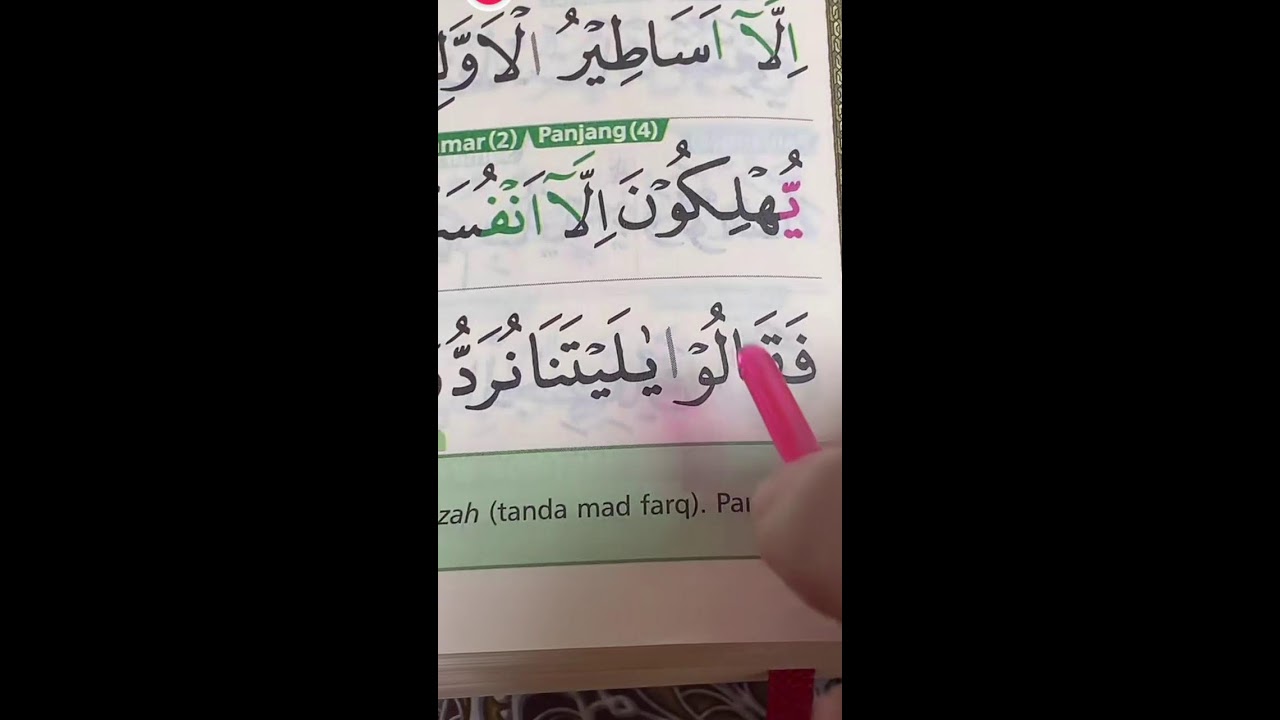 اِلَّآ اَسَاطِيْرُ الْاَوَّلِ
mar(2) Panjang(4)
يُّهْلِكُوْنَ اِلَّآ اَنْفُسَ
فَقَالُوْا يٰلَيْتَنَا نُرَدُّ
zah (tanda mad farq). Pa